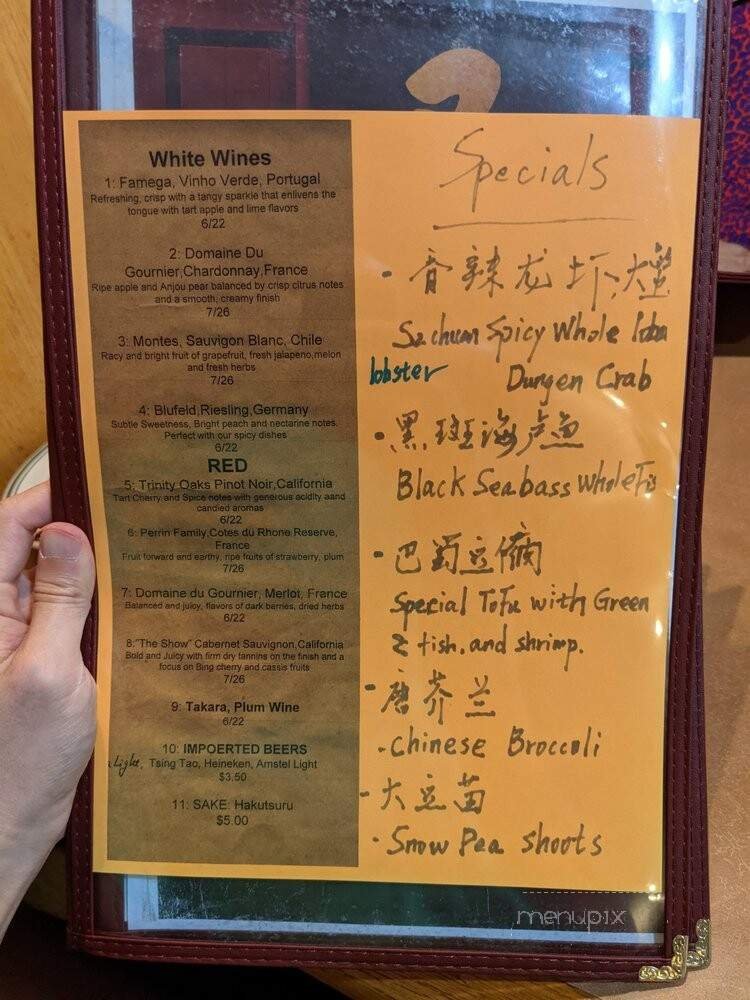 White Wines
1: Famega, Vinho Verde, Portugal
Refreshing, crisp with a tangy sparkle that enlivens the
tongue with tart apple and lime flavors
6/22
2: Domaine Du
Gournier,Chardonnay,France
Ripe apple and Anjou pear balanced by crisp citrus notes
and a smooth, creamy finish
7/26
3: Montes, Sauvignon Blanc, Chile
Racy and bright fruit of grapefruit, fresh jalapeno,melon
and fresh herbs
7/26
4: Blufeld,Riesling,Germany
Subtle Sweetness, Bright peach and nectarine notes.
Perfect with our spicy dishes
6/22
RED
5: Trinity Oaks Pinot Noir,California
Tart Cherry and Spice notes with generous acidity aand
candied aromas
6/22
6: Perrin Family,Cotes du Rhone Reserve,
France
Fruit forward and earthy, ripe fruits of strawberry, plum
7/26
7: Domaine du Gournier, Merlot, France
Balanced and juicy, flavors of dark barries, dried herbs
6/22
8:"The Show" Cabernet Sauvignon,California
Bold and Juicy with firm dry tannins on the finish and a
focus on Bing cherry and cassis fruits
7/26
9: Takara, Plum Wine
6/22
10: IMPOERTED BEERS
Light, Tsing Tao, Heineken, Amstel Light
$3.50
11: SAKE: Hakutsuru
$5.00
Specials
· 香辣龙虾,大蟹
Sachuan Spicy Whole
lobster Dungen Crab
· 黑斑海卢鱼
Black Seabass Whole
· 巴蜀豆
Special Tofu with Green
fish. and shrimp.
· 唐芥兰
· Chinese Broccoli
· 大豆苗
· Snow Pea shoots
menupix